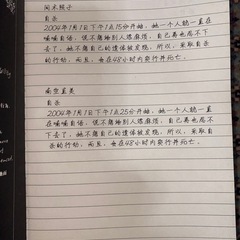 向米棋子
自杀
2004年1月1日下午1点15分开始，她一个人躺一直
在喃喃自语，说不想给别人添麻烦，自己再也忍不下
去了，她不想自己的遗体被发现，所以，采取自杀
的行动，而且，会在48小时内实行并死亡。
南空直美
自杀
2004年1月1日下午1点25分开始，她一个人躺一直
在喃喃自语，说不想给别人添麻烦，自己再也忍不
下去了，她不想自己的遗体被发现，所以，采取自
杀的行动，而且，会在48小时内实行并死亡。